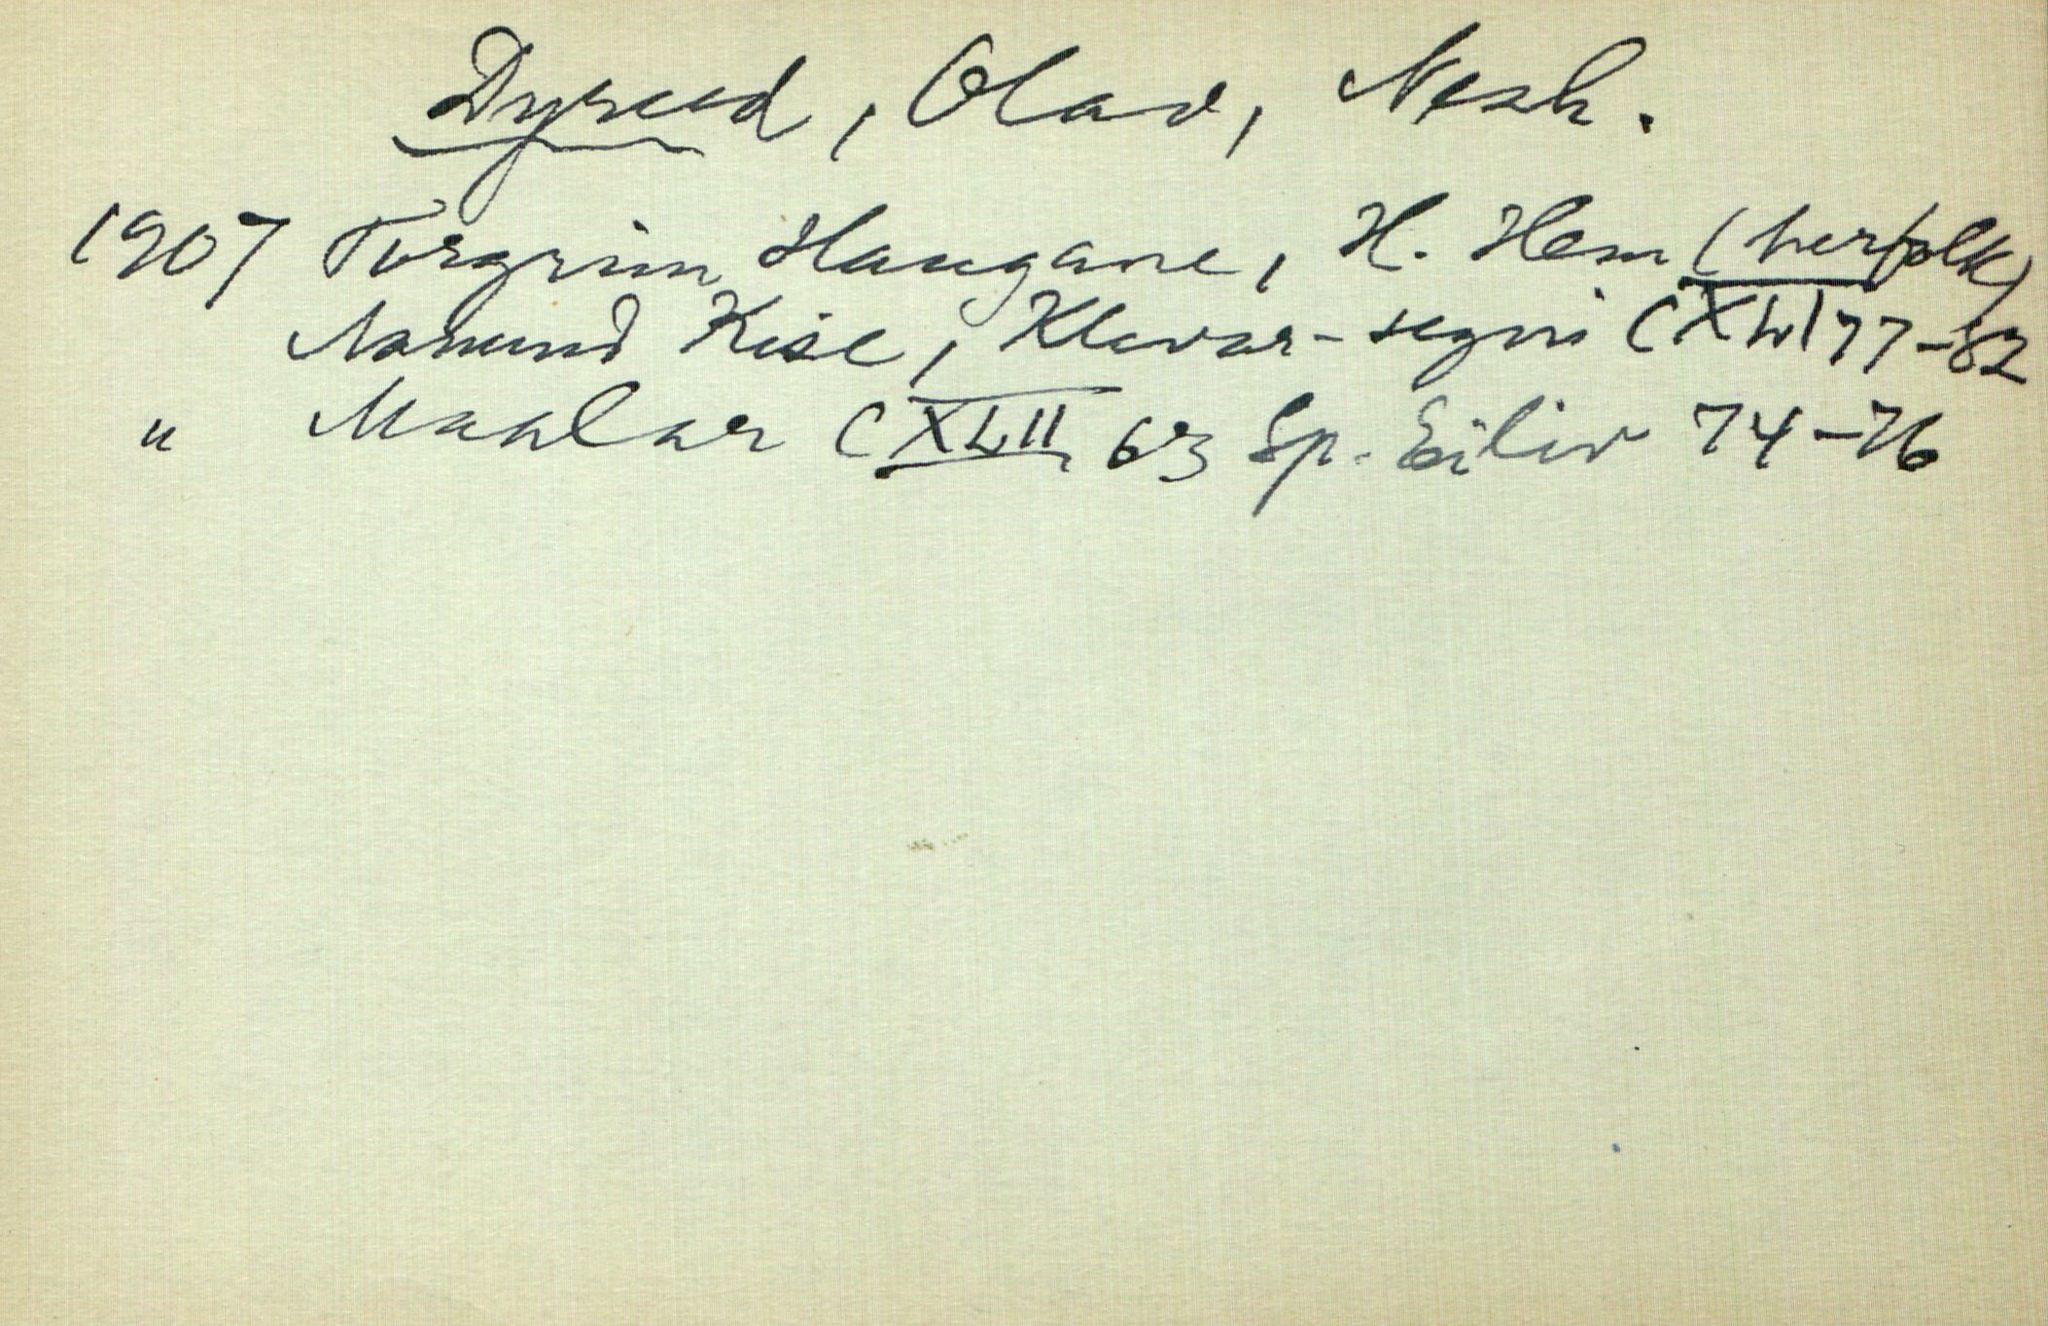 Dyrud, Olav, Nesh.
1907 Torgrim Haugane, H. Hem (herfolk)
Asmund Kise, Klevar-segni CXLI 77-82
" Maalar CXLII 63 Sp. Eiliv 74-76